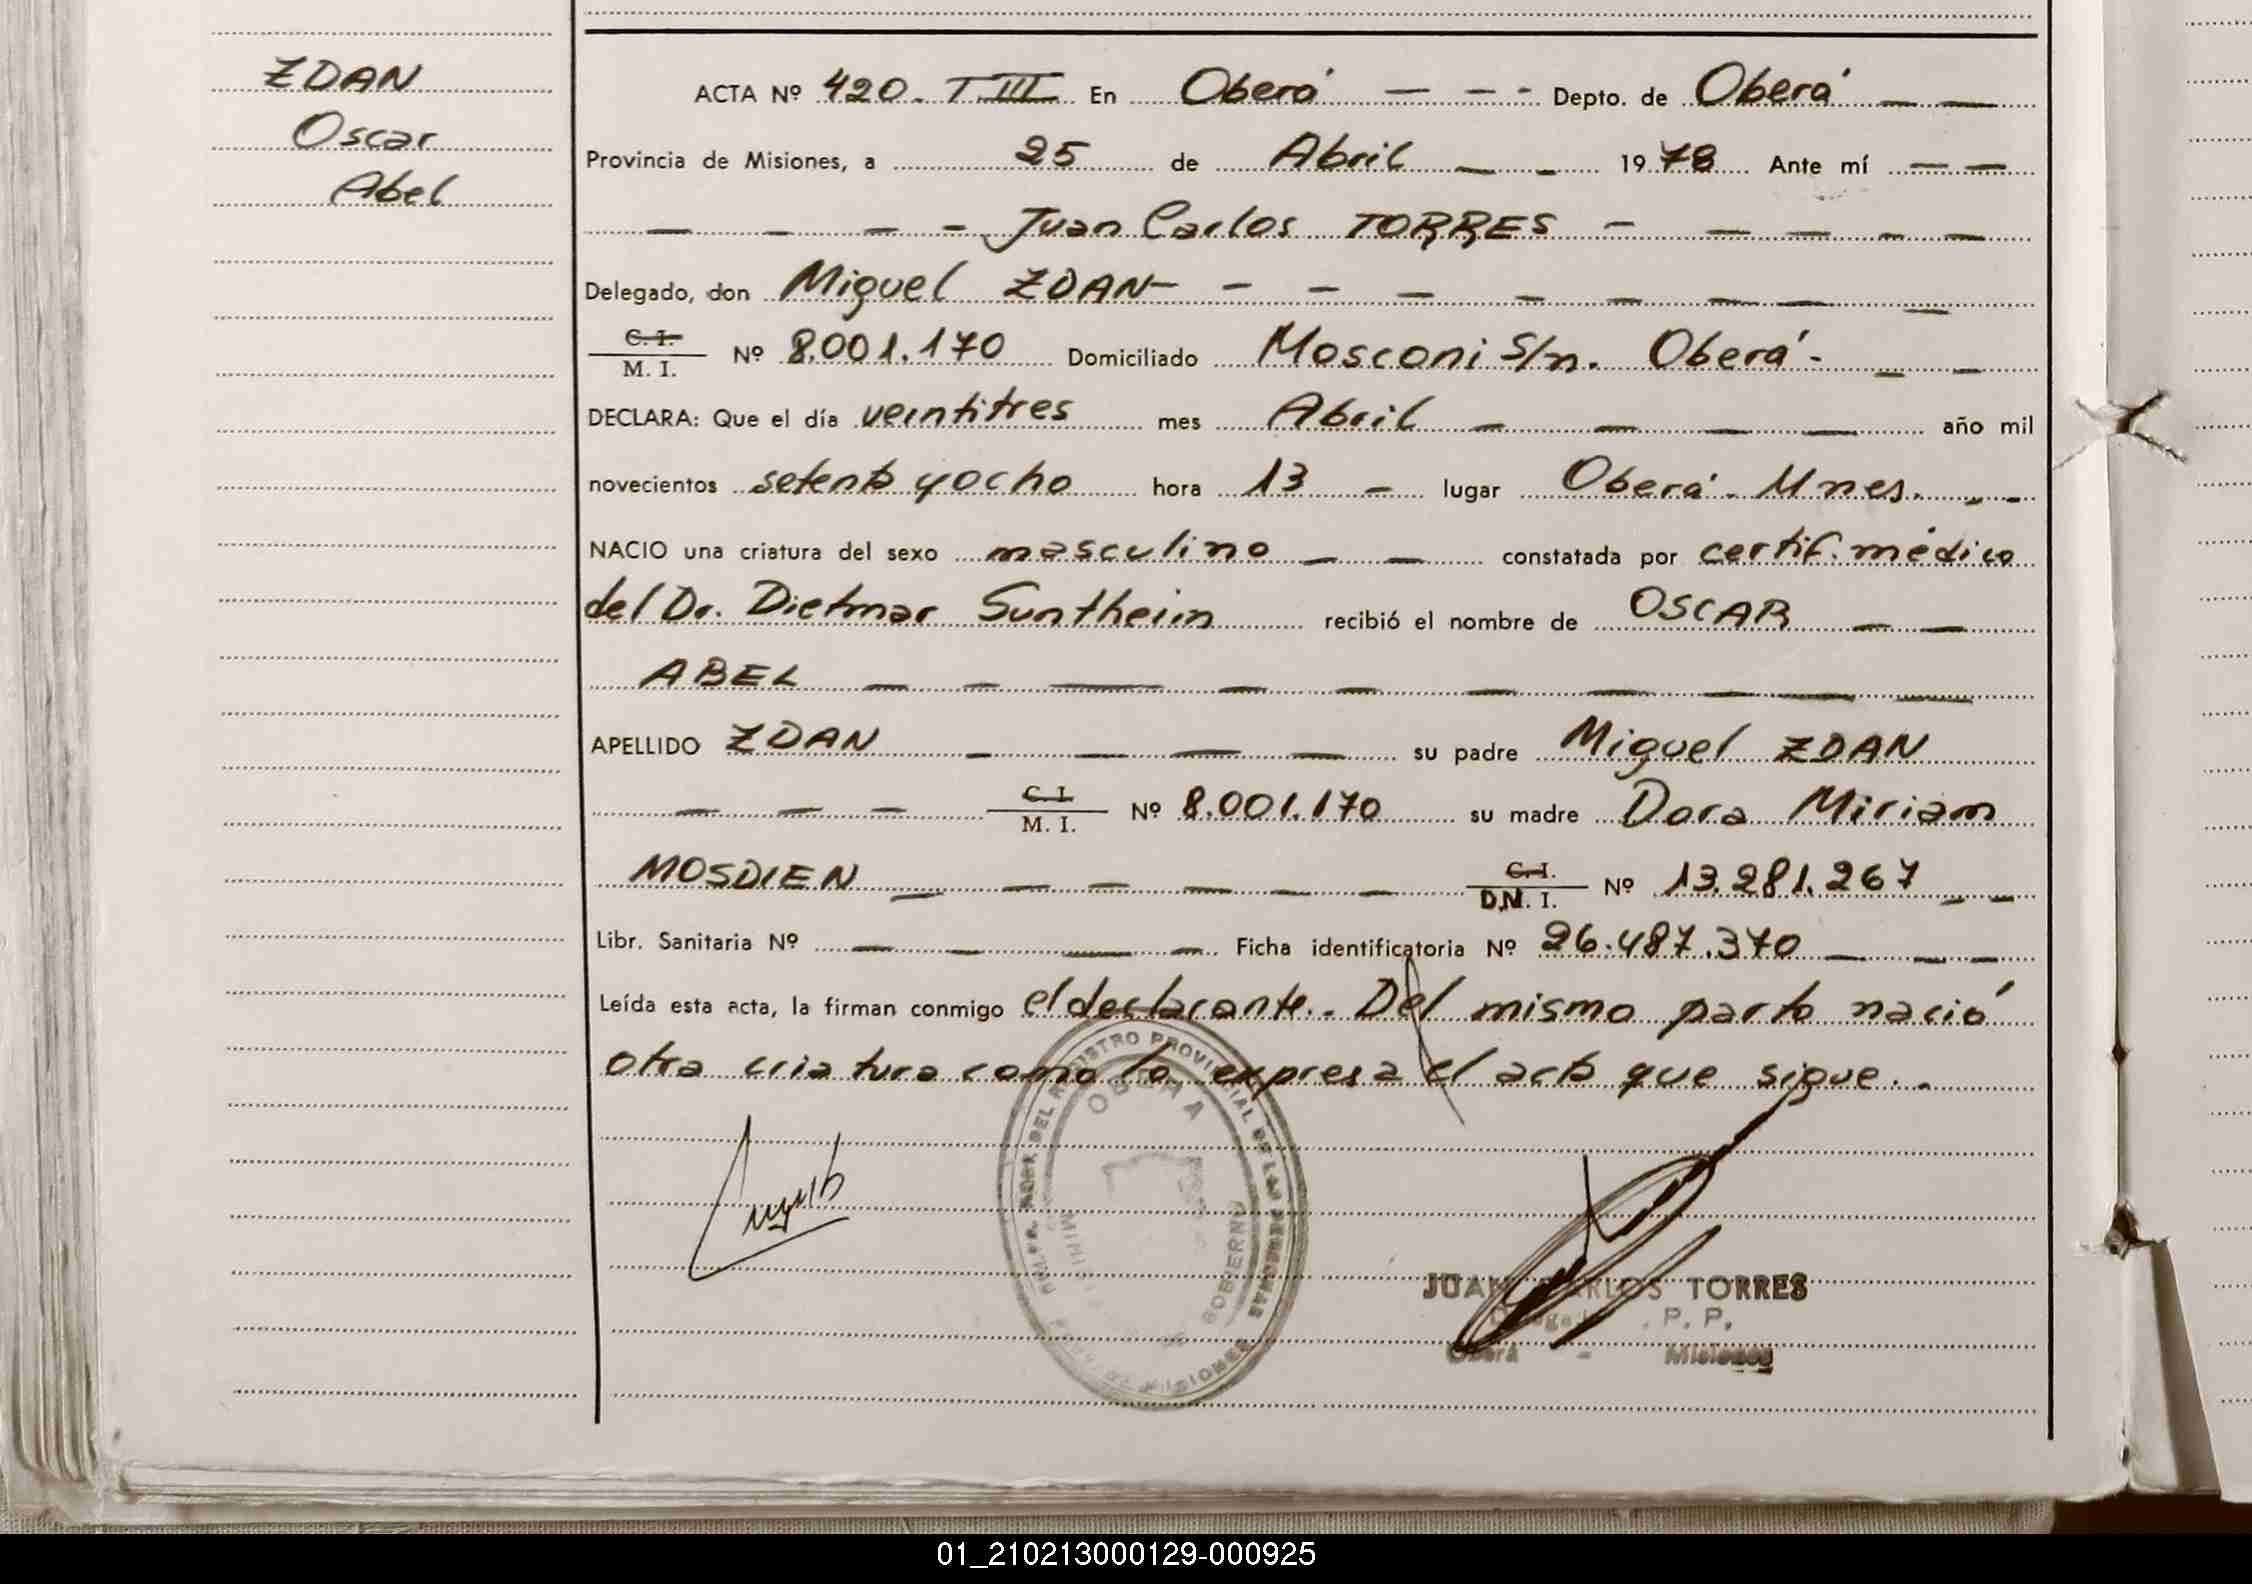 ZDAN
Oscar
Abel
ACTA Nº 420. T. III En Oberá - - - Depto. de Oberá - -
Provincia de Misiones, a 25 de Abril - - 1978 Ante mí - -
- - - - Juan Carlos TORRES - - - - -
Delegado, don Miguel ZDAN - - - - - - - - -
C. I.
M. I. Nº 8.001.170 Domiciliado Mosconi s/n. Oberá. - -
DECLARA: Que el día veintitres mes Abril - - - - año mil
novecientos setenta y ocho hora 13 - lugar Oberá. Mnes. - -
NACIO una criatura del sexo masculino - - constatada por certif. médico
del Dr. Dietmar Suntheim recibió el nombre de OSCAR - -
ABEL - - - - - - - - - -
APELLIDO ZDAN - - - - su padre Miguel ZDAN
- - - C. I.
M. I. Nº 8.001.170 su madre Dora Miriam
MOSDIEN - - - - - - C. I.
D.N. I. Nº 13.281.267 - -
Libr. Sanitaria Nº - - - - Ficha identificatoria Nº 26.487.370 - - -
Leída esta acta, la firman conmigo el declarante.. Del mismo parto nació
otra criatura como lo expresa el acta que sigue..
DEL REGISTRO PROVINCIAL DE LAS PERSONAS
OBERA
GOBIERNO
MISIONES
JUAN CARLOS TORRES
P. P.
Oberá - Misiones
01_210213000129-000925